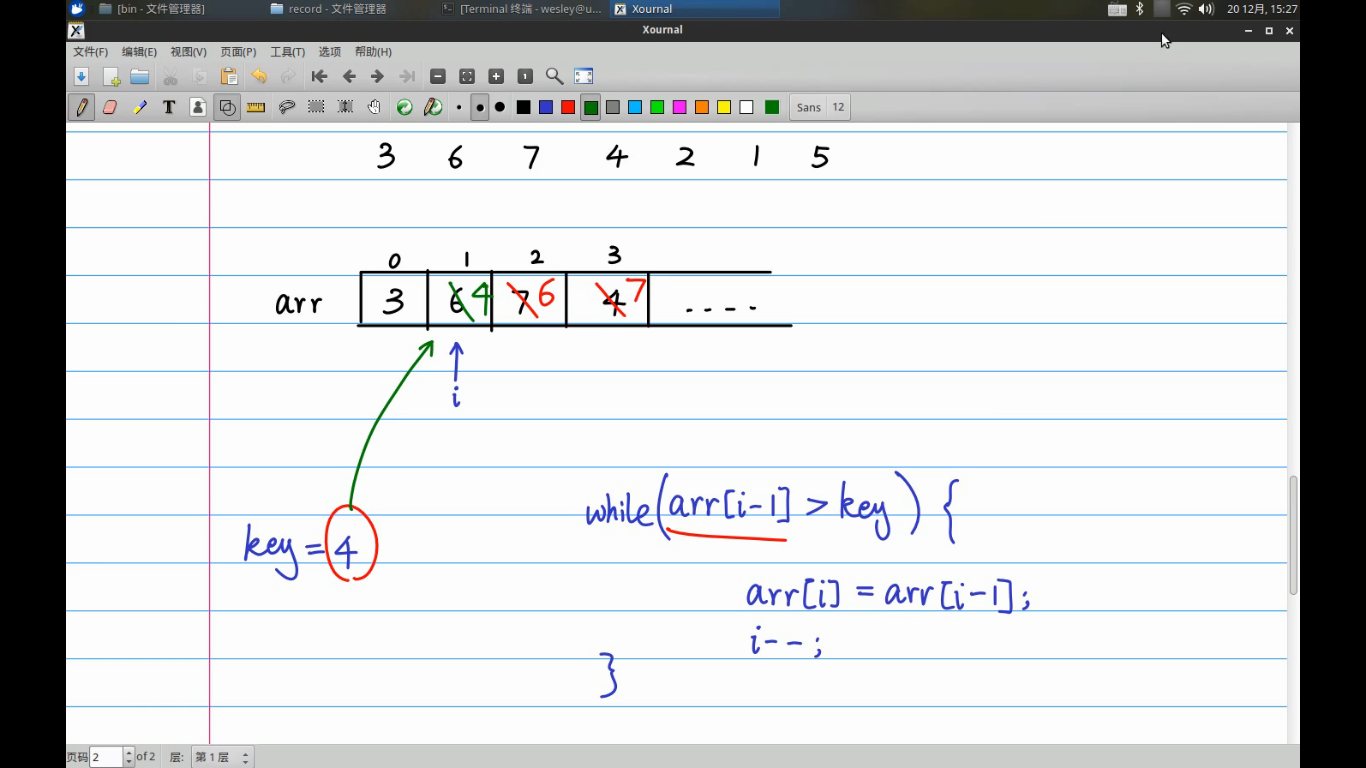 [bin - 文件管理器] record - 文件管理器 [Terminal 终端 - wesley@u... Xournal 20 12月, 15:27
Xournal
文件(F) 编辑(E) 视图(V) 页面(P) 工具(T) 选项 帮助(H)
Sans 12
3 6 7 4 2 1 5
0 1 2 3
arr 3 6 4 7 6 4 7 ....
i
while(arr[i-1] > key) {
key = 4
arr[i] = arr[i-1];
i--;
}
页码 2 of 2 层: 第 1 层